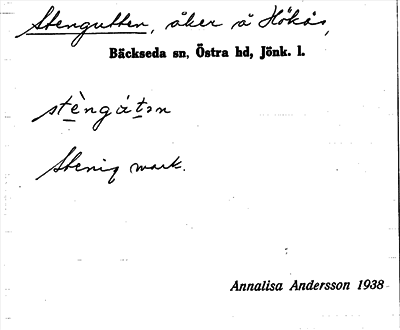 Stengutten, åker å Hökås,
Bäckseda sn, Östra hd, Jönk. l.
stèngátən
Stenig mark.
Annalisa Andersson 1938